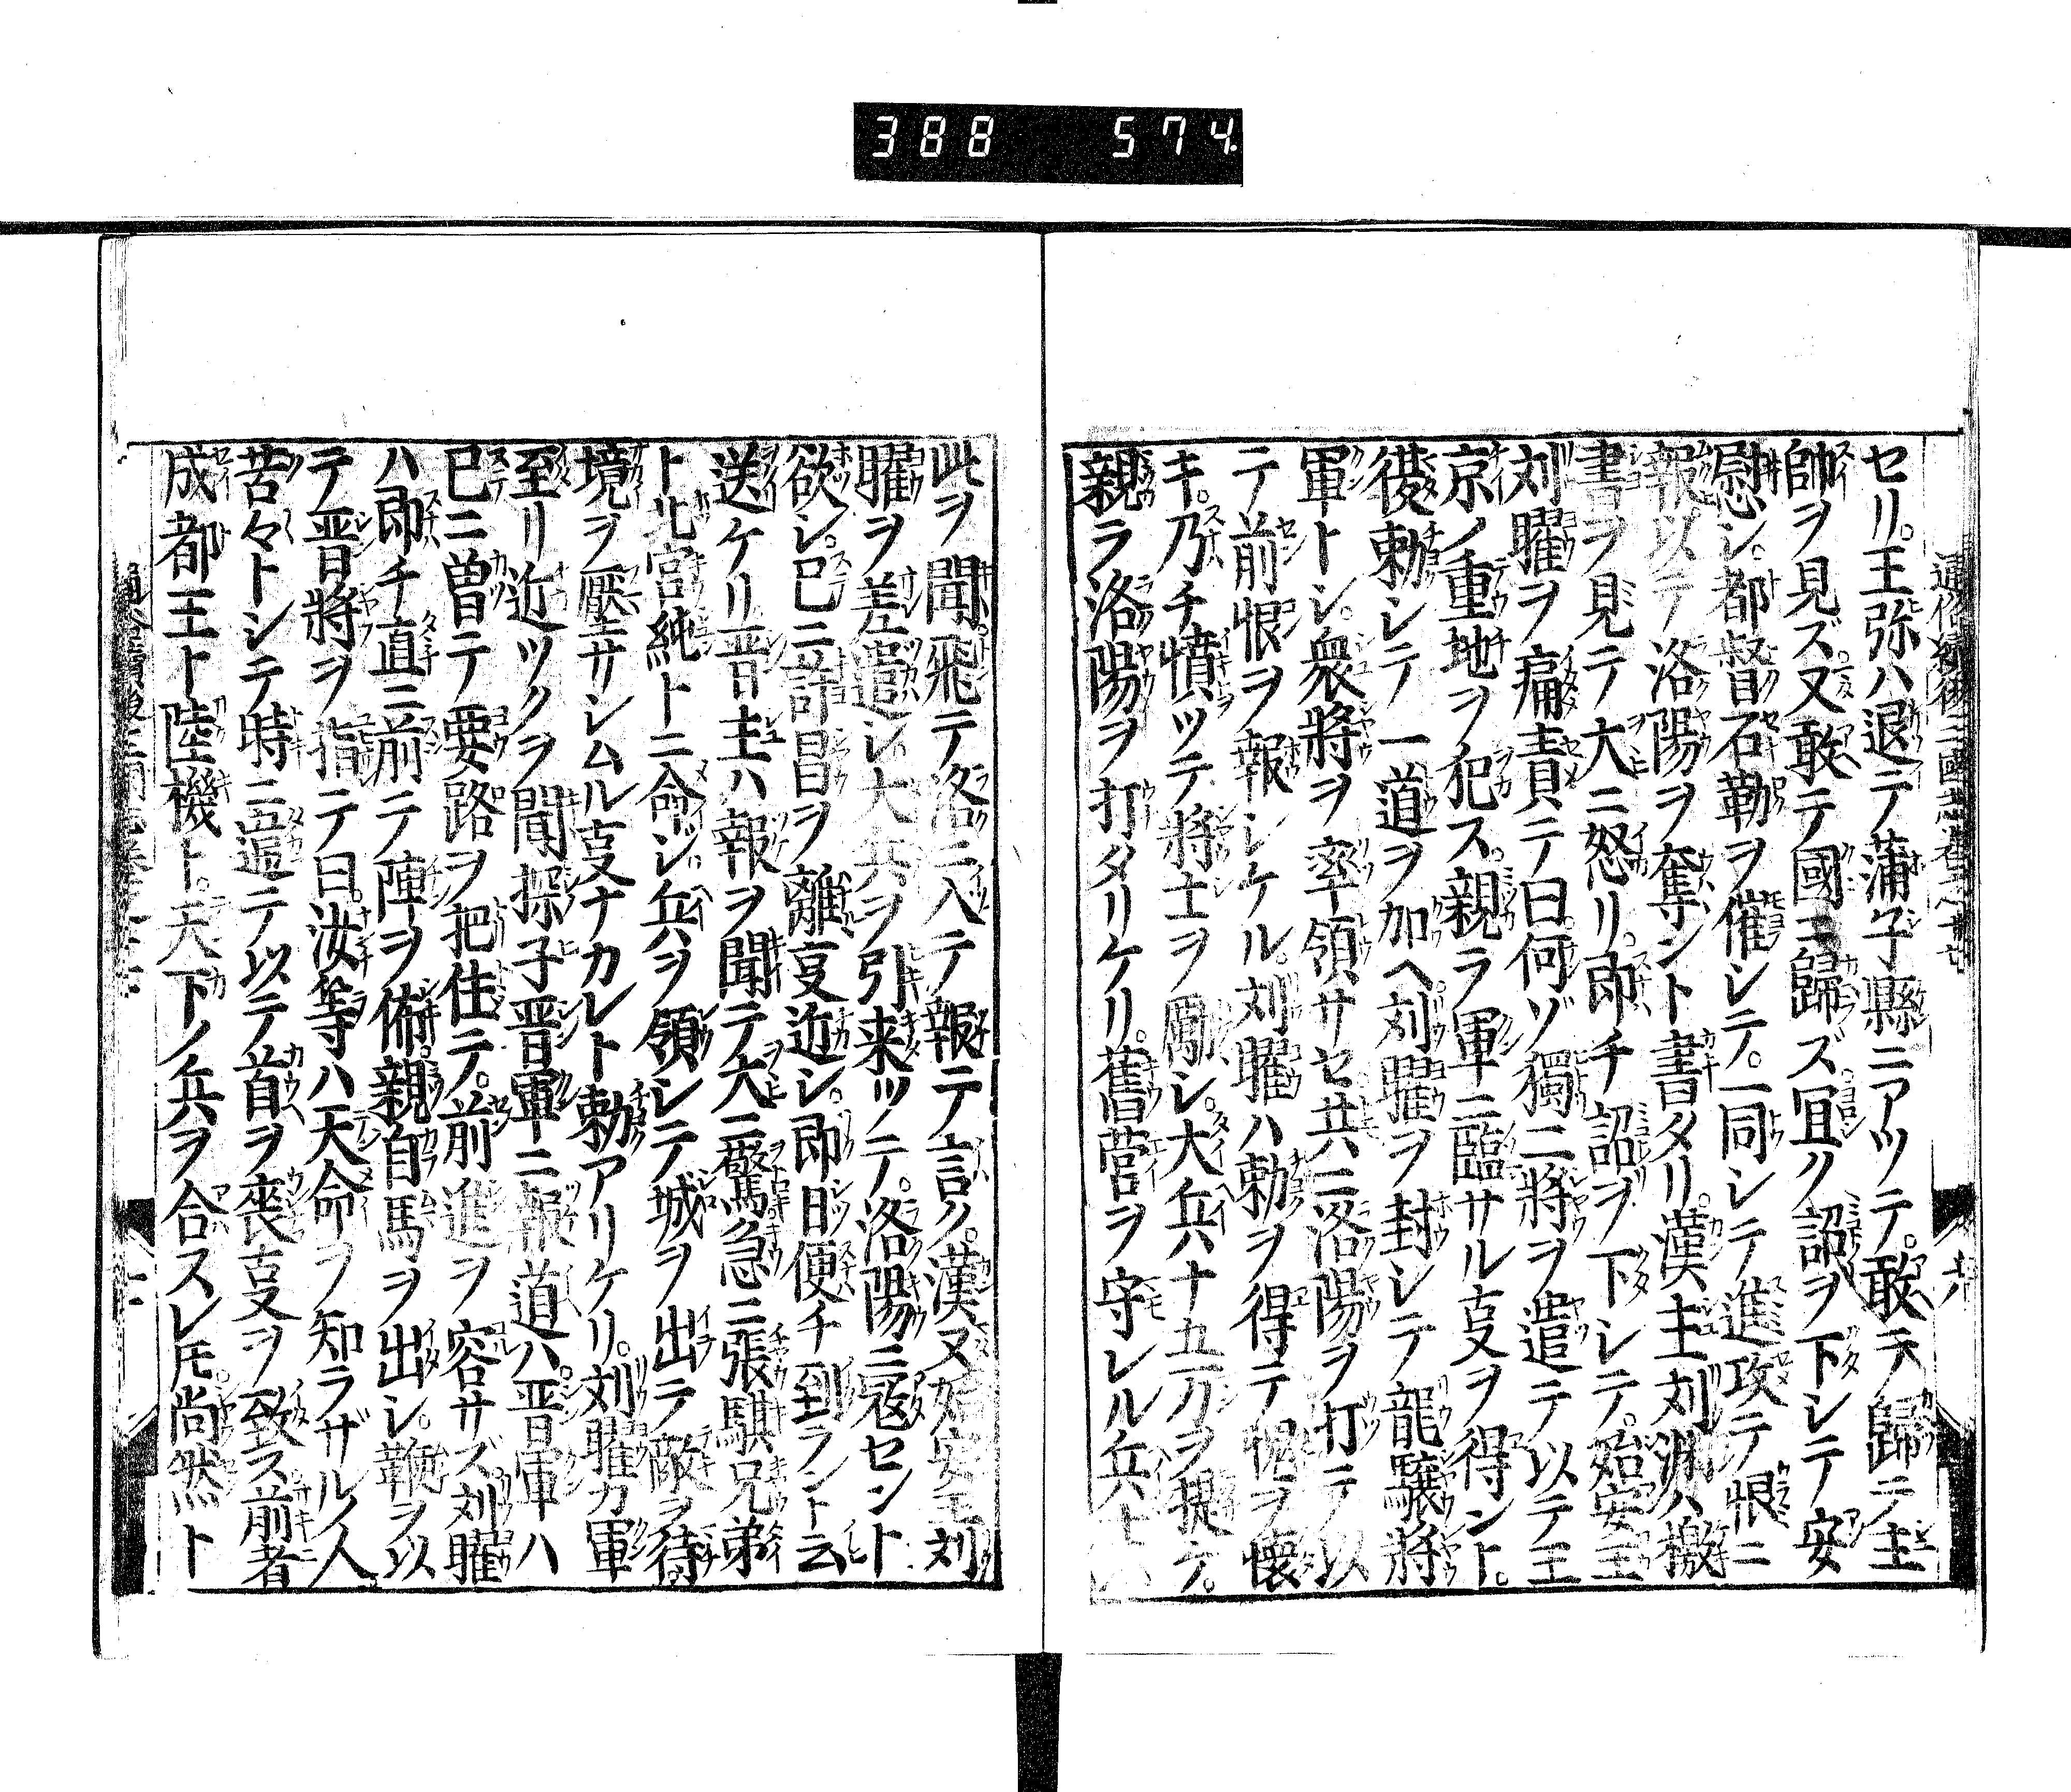 388 574.
セリ。王弥ハ退テ蒲子縣ニアツテ。敢テ歸ラズ主
帥ヲ見ズ又敢テ國ニ歸ズ。冝ク詔ヲ下シテ安
慰シ。都督石勒ヲ催シテ。一同シテ進攻テ恨ニ
報以テ洛陽ヲ奪ント書タリ。漢主刘渊ハ檄
書ヲ見テ大ニ怒リ。即チ詔ヲ下シテ。始安王
刘曜ヲ痛責テ曰。何ゾ獨二將ヲ遣テ以テ王
京ノ重地ヲ犯ス。親ラ軍ニ臨サル叓ヲ得ント。
復勅シテ一道ヲ加ヘ。刘曜ヲ封シテ龍驤將
軍トシ。衆將ヲ率領サセ共ニ洛陽ヲ打テ以
テ前恨ヲ報シケル。刘曜ハ勅ヲ得テ愧ヲ懐
キ。乃チ憤ツテ將士ヲ勵シ。大兵十五万ヲ提テ。
親ラ洛陽ヲ打タリケリ。舊営ヲ守レル兵士
此ヲ聞飛テ洛ニ入テ報テ言ク。漢又始安王刘
曜ヲ差遣シ大兵ヲ引来ツテ。洛陽ニ冦セント
欲シ。已ニ許昌ヲ離叓近シ。即日便チ到ラント云
送ケリ。晋主ハ報ヲ聞テ大ニ驚急ニ張騏兄弟
ト北宮純トニ命ジ。兵ヲ領シテ城ヲ出テ敵ヲ待。
境ヲ壓サシムル叓ナカレト勅アリケリ。刘曜カ軍
至リ近ツクヲ聞探子晋軍ニ報道ハ。晋軍ハ
已ニ曽テ要路ヲ把住テ。前進ヲ容サズ。刘曜
ハ即チ直ニ前テ陣ヲ佈。親自馬ヲ出シ。鞭ヲ以
テ晋將ヲ指テ曰。汝等ハ天命ヲ知ラザルノ人。
苦々トシテ時ニ違テ以テ首ヲ喪叓ヲ致ス。前者
成都王ト陸機ト。天下ノ兵ヲ合スレ𪜈。尚然ト